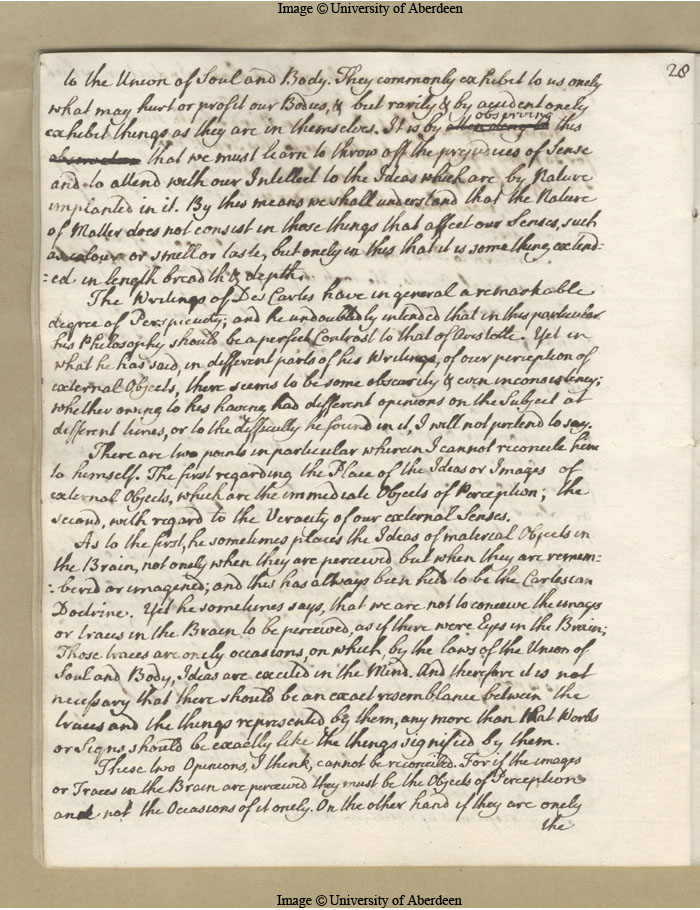 Image © University of Aberdeen
28
to the Union of Soul and Body. They commonly exhibit to us onely
what may hurt or profit our Bodies, & but rarely & by accident onely
exhibit things as they are in themselves. It is by observing this
that we must learn to throw off the prejudices of Sense
and to attend with our Intellect to the Ideas which are by Nature
implanted in it. By this means we shall understand that the Nature
of Matter does not consist in those things that affect our Senses, such
as colour or smell or taste, but onely in this that it is something extend-
:ed in length breadth & depth.
The Writings of Des Cartes have in general a remarkable
degree of Perspicuity; and he undoubtedly intended that in this particular
his Philosophy should be a perfect Contrast to that of Aristotle. Yet in
what he has said, in different parts of his Writings, of our perception of
external Objects, there seems to be some obscurity & even inconsistency;
whether owing to his having had different opinions on the Subject at
different times, or to the difficulty he found in it, I will not pretend to say.
There are two points in particular wherein I cannot reconcile him
to himself. The first regarding the Place of the Ideas or Images of
external Objects, which are the immediate Objects of Perception; the
second, with regard to the Veracity of our external Senses.
As to the first, he sometimes places the Ideas of material Objects in
the Brain, not onely when they are perceived but when they are remem-
:bered or imagined; and this has always been held to be the Cartesian
Doctrine. Yet he sometimes says, that we are not to conceive the images
or traces in the Brain to be perceived, as if there were Eyes in the Brain;
Those traces are onely occasions, on which, by the laws of the Union of
Soul and Body, Ideas are excited in the Mind. And therefore it is not
necessary that there should be an exact resemblance between the
traces and the things represented by them, any more than that Words
or Signs should be exactly like the things signified by them.
These two Opinions, I think, cannot be reconciled. For if the images
or Traces in the Brain are perceived they must be the Objects of Perception
and not the Occasions of it onely. On the other hand if they are onely
the
Image © University of Aberdeen